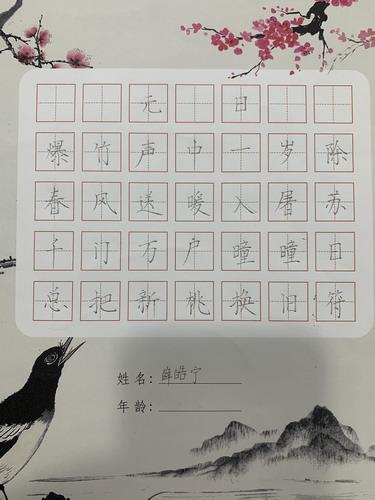 元日
爆竹声中一岁除
春风送暖入屠苏
千门万户曈曈日
总把新桃换旧符
姓名：薛皓宁
年龄：